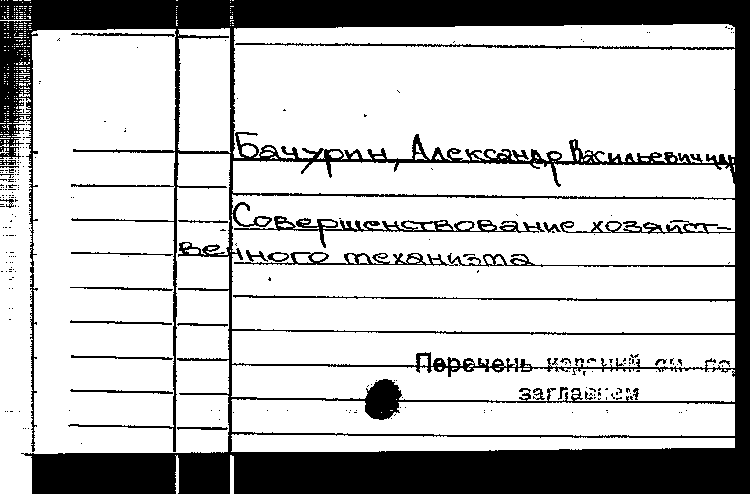 Бачурин, Александр Васильевич и др
Совершенствование хозяйст-
венного механизма
Перечень изданий см. под
заглавием